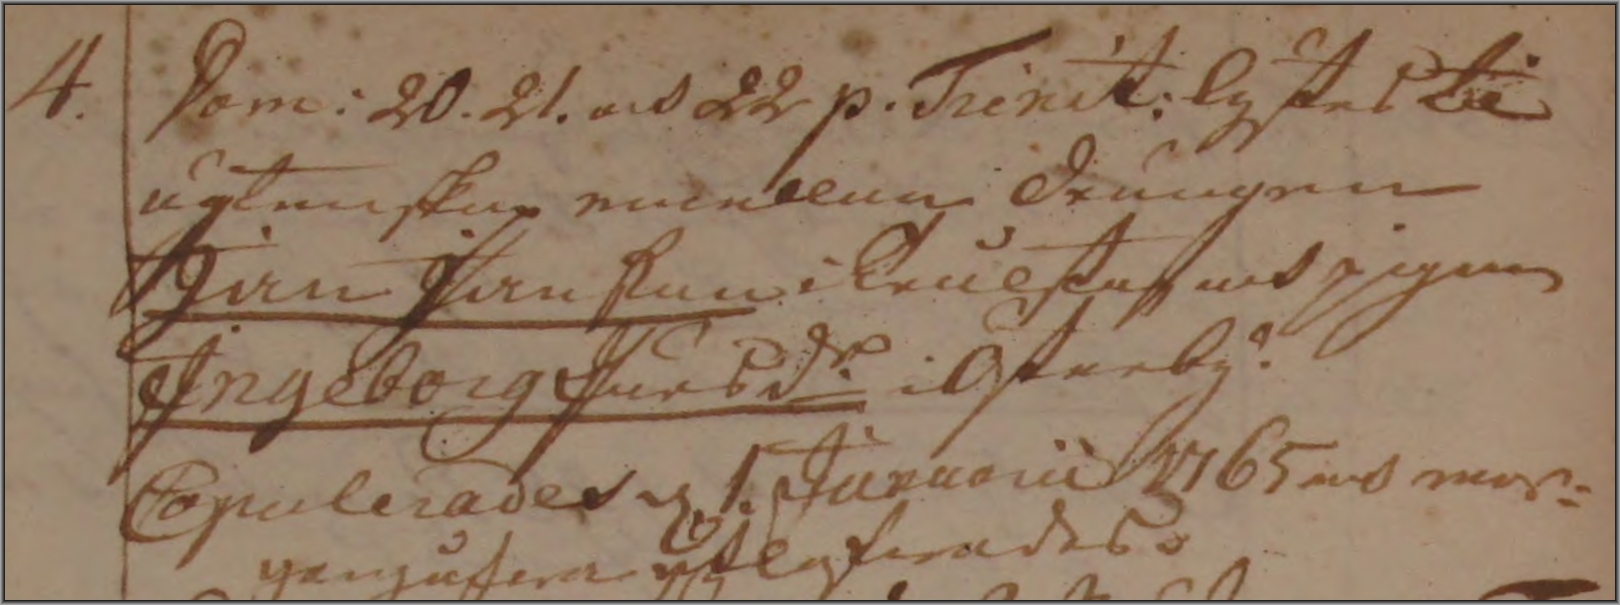 4. Dom: 20. 21. och 22 p. Trinit: lystes til
ägtenskap emellan Drängen
Jan Jansson i och pigan
Ingeborg Larsd:r i Österby.
Copulerades d. 1. Januarii 1765 och mor-
gongåfva utfgs.